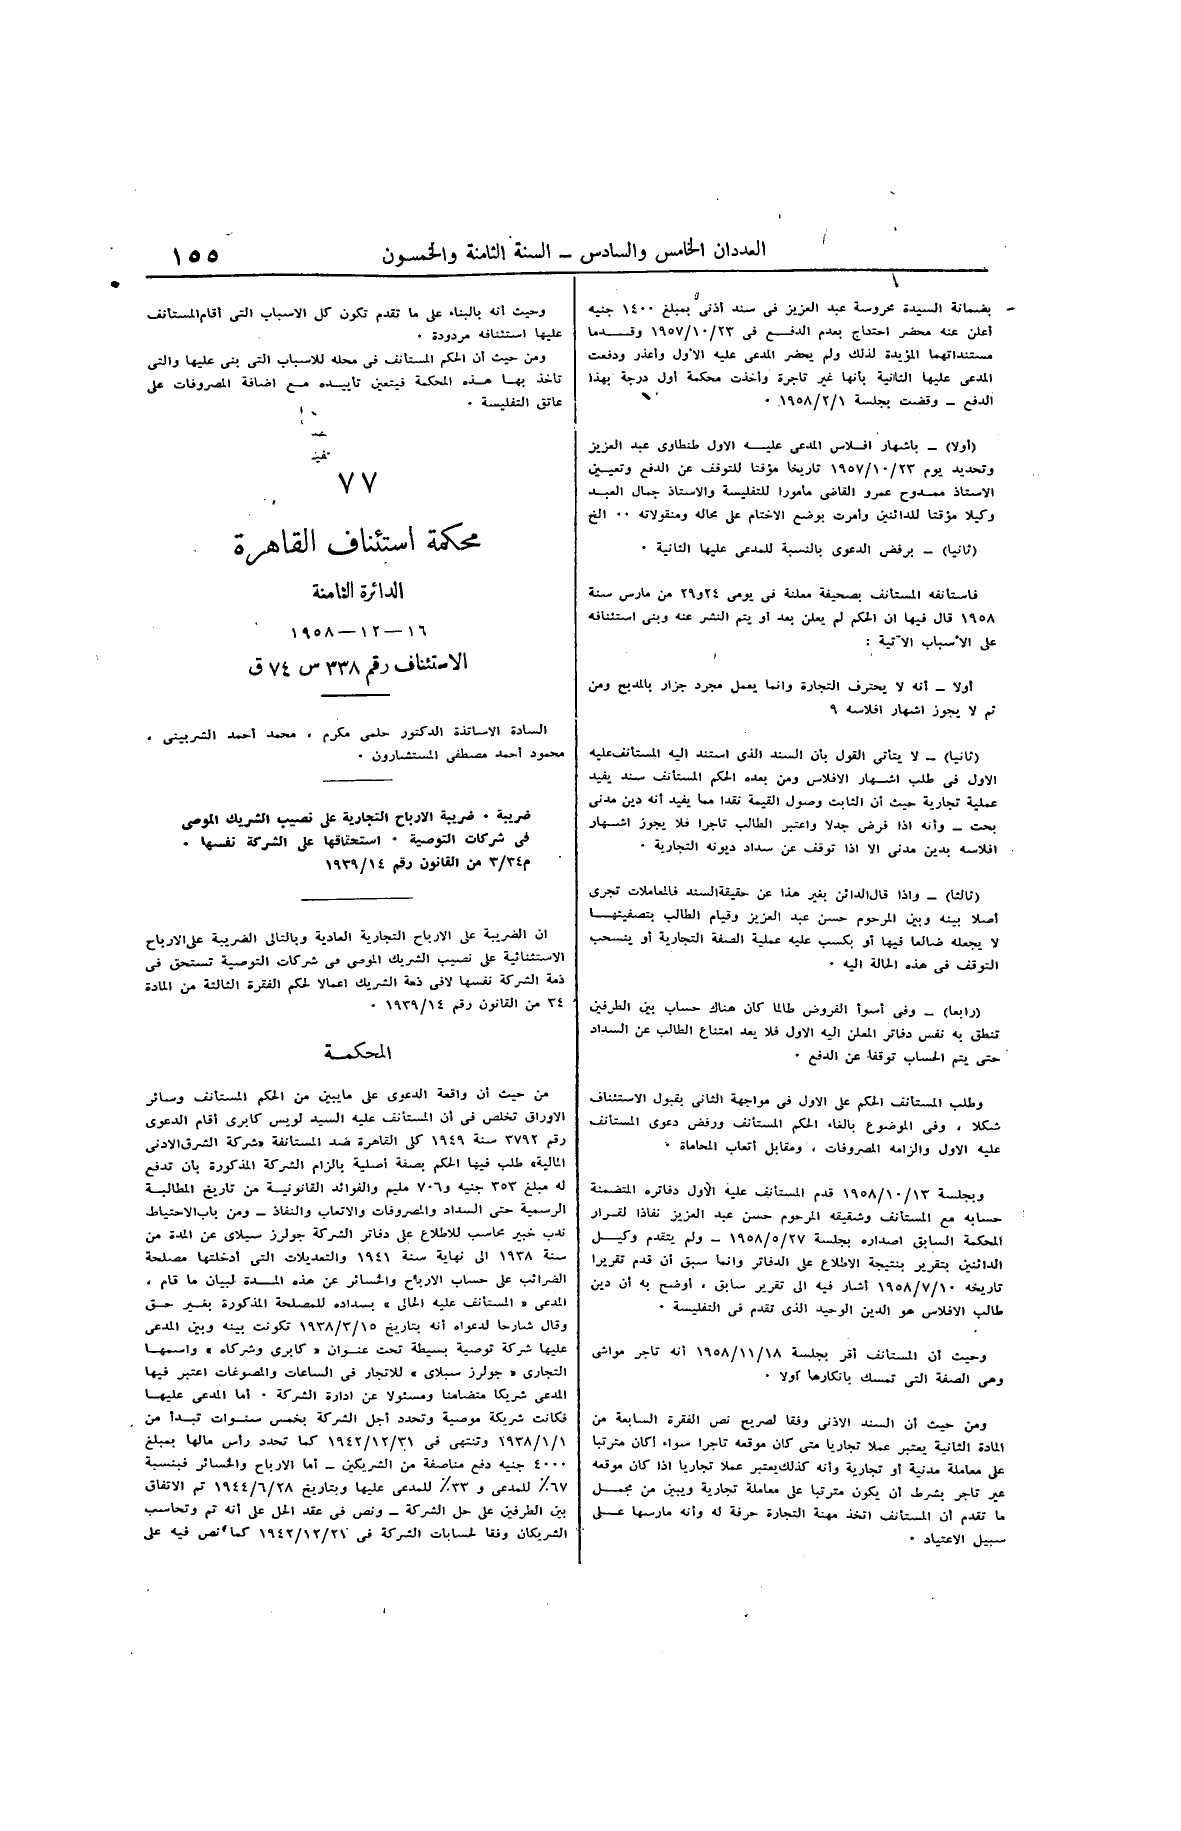 العددان الخامس والسادس ــ السنة الثامنة والخمسون
١٥٥
بضمانة السيدة محروسة عبد العزيز فى سند أذنى بمبلغ ١٤٠٠ جنيه
أعلن عنه محضر احتداج بعدم الدفع فى ١٩٥٧/١٠/٢٣ وقدما
مستنداتهما المؤيدة لذلك ولم يحضر المدعى عليه الأول وأعذر ودفعت
المدعى عليها الثانية بأنها غير تاجرة وأخذت محكمة أول درجة بهذا
الدفع ــ وقضت بجلسة ١٩٥٨/٢/١ ٠
(أولا) ــ باشهار افلاس المدعى عليه الاول طنطاوى عبد العزيز
وتحديد يوم ١٩٥٧/١٠/٢٣ تاريخا مؤقتا للتوقف عن الدفع وتعيين
الاستاذ ممدوح عمرو القاضى مأمورا للتفليسة والاستاذ جمال العبد
وكيلا مؤقتا للدائنين وأمرت بوضع الاختام على محاله ومنقولاته ٠٠ الخ
(ثانيا) ــ برفض الدعوى بالنسبة للمدعى عليها الثانية ٠
فاستأنفه المستأنف بصحيفة معلنة فى يومى ٢٤و٢٩ من مارس سنة
١٩٥٨ قال فيها ان الحكم لم يعلن بعد أو يتم النشر عنه وبنى استئنافه
على الأسباب الآتية :
أولا ــ أنه لا يحترف التجارة وانما يعمل مجرد جزار بالمذبح ومن
ثم لا يجوز اشهار افلاسه ٩
(ثانيا) ــ لا يتأتى القول بأن السند الذى استند اليه المستأنف عليه
الاول فى طلب اشهار الافلاس ومن بعده الحكم المستأنف سند يفيد
عملية تجارية حيث أن الثابت وصول القيمة نقدا مما يفيد أنه دين مدنى
بحت ــ وأنه اذا فرض جدلا واعتبر الطالب تاجرا فلا يجوز اشهار
افلاسه بدين مدنى الا اذا توقف عن سداد ديونه التجارية ٠
(ثالثا) ــ واذا قال الدائن بغير هذا عن حقيقة السند فالمعاملات تجرى
أصلا بينه وبين المرحوم حسن عبد العزيز وقيام الطالب بتصفيتها
لا يجعله ضالعا فيها أو يكسب عليه عملية الصفة التجارية أو ينسحب
التوقف فى هذه الحالة اليه ٠
(رابعا) ــ وفى أسوأ الفروض طالما كان هناك حساب بين الطرفين
تنطق به نفس دفاتر المعلن اليه الاول فلا يعد امتناع الطالب عن السداد
حتى يتم الحساب توقفا عن الدفع ٠
وطلب المستأنف الحكم على الاول فى مواجهة الثانى بقبول الاستئناف
شكلا ، وفى الموضوع بالغاء الحكم المستأنف ورفض دعوى المستأنف
عليه الاول والزامه المصروفات ، ومقابل أتعاب المحاماة ٠
وبجلسة ١٩٥٨/١٠/١٣ قدم المستأنف عليه الأول دفاتره المتضمنة
حسابه مع المستأنف وشقيقه المرحوم حسن عبد العزيز نفاذا لقرار
المحكمة السابق اصداره بجلسة ١٩٥٨/٥/٢٧ ــ ولم يتقدم وكيل
الدائنين بتقرير بنتيجة الاطلاع على الدفاتر وانما سبق أن قدم تقريرا
تاريخه ١٩٥٨/٧/١٠ أشار فيه الى تقرير سابق ، أوضح به أن دين
طالب الافلاس هو الدين الوحيد الذى تقدم فى التفليسة ٠
وحيث أن المستأنف أقر بجلسة ١٩٥٨/١١/١٨ أنه تاجر مواشى
وهى الصفة التى تمسك بانكارها أولا ٠
ومن حيث أن السند الاذنى وفقا لصريح نص الفقرة السابعة من
المادة الثانية يعتبر عملا تجاريا متى كان موقعه تاجرا سواء أكان مترتبا
على معاملة مدنية أو تجارية وأنه كذلك يعتبر عملا تجاريا اذا كان موقعه
غير تاجر بشرط أن يكون مترتبا على معاملة تجارية ويبين من مجمل
ما تقدم أن المستأنف اتخذ مهنة التجارة حرفة له وأنه مارسها على
سبيل الاعتياد ٠
وحيث أنه بالبناء على ما تقدم تكون كل الاسباب التى أقام المستأنف
عليها استئنافه مردودة ٠
ومن حيث أن الحكم المستأنف فى محله للاسباب التى بنى عليها والتى
تأخذ بها هذه المحكمة فيتعين تأييده مع اضافة المصروفات على
عاتق التفليسة ٠
٧٧
محكمة استئناف القاهرة
الدائرة الثامنة
١٦ــ١٢ــ١٩٥٨
الاستئناف رقم ٣٣٨ س ٧٤ ق
السادة الاساتذة الدكتور حلمى مكرم ، محمد أحمد الشربينى ،
محمود أحمد مصطفى المستشارون ٠
ضريبة ٠ ضريبة الارباح التجارية على نصيب الشريك الموصى
فى شركات التوصية ٠ استحقاقها على الشركة نفسها ٠
م٣/٣٤ من القانون رقم ١٩٣٩/١٤
ان الضريبة على الارباح التجارية العادية وبالتالى الضريبة على الارباح
الاستثنائية على نصيب الشريك الموصى فى شركات التوصية تستحق فى
ذمة الشركة نفسها لافى ذمة الشريك اعمالا لحكم الفقرة الثالثة من المادة
٣٤ من القانون رقم ١٩٣٩/١٤ ٠
المحكمــة
من حيث أن واقعة الدعوى على مايبين من الحكم المستأنف وسائر
الاوراق تخلص فى أن المستأنف عليه السيد لويس كابرى أقام الدعوى
رقم ٣٧٩٢ سنة ١٩٤٩ كلى القاهرة ضد المستأنفة «شركة الشرق الادنى
المالية» طلب فيها الحكم بصفة أصلية بالزام الشركة المذكورة بأن تدفع
له مبلغ ٣٥٣ جنيه و٧٠٦ مليم والفوائد القانونية من تاريخ المطالبة
الرسمية حتى السداد والمصروفات والاتعاب والنفاذ ــ ومن باب الاحتياط
ندب خبير محاسب للاطلاع على دفاتر الشركة جولرز سيلاى عن المدة من
سنة ١٩٣٨ الى نهاية سنة ١٩٤١ والتعديلات التى أدخلتها مصلحة
الضرائب على حساب الارباح والخسائر عن هذه المدة لبيان ما قام ،
المدعى « المستأنف عليه الحالى » بسداده للمصلحة المذكورة بغير حق
وقال شارحا لدعواه أنه بتاريخ ١٩٣٨/٣/١٥ تكونت بينه وبين المدعى
عليها شركة توصية بسيطة تحت عنوان « كابرى وشركاه » واسمها
التجارى « جولرز سيلاى » للاتجار فى الساعات والمصوغات اعتبر فيها
المدعى شريكا متضامنا ومسئولا عن ادارة الشركة ٠ أما المدعى عليها
فكانت شريكة موصية وتحدد أجل الشركة بخمس سنوات تبدأ من
١٩٣٨/١/١ وتنتهى فى ١٩٤٢/١٢/٣١ كما تحدد رأس مالها بمبلغ
٤٠٠٠ جنيه دفع مناصفة من الشريكين ــ أما الارباح والخسائر فبنسبة
٦٧٪ للمدعى و ٣٣٪ للمدعى عليها وبتاريخ ١٩٤٤/٦/٢٨ تم الاتفاق
بين الطرفين على حل الشركة ــ ونص فى عقد الحل على أنه تم وتحاسب
الشريكان وفقا لحسابات الشركة فى ١٩٤٢/١٢/٢١ كما نص فيه على